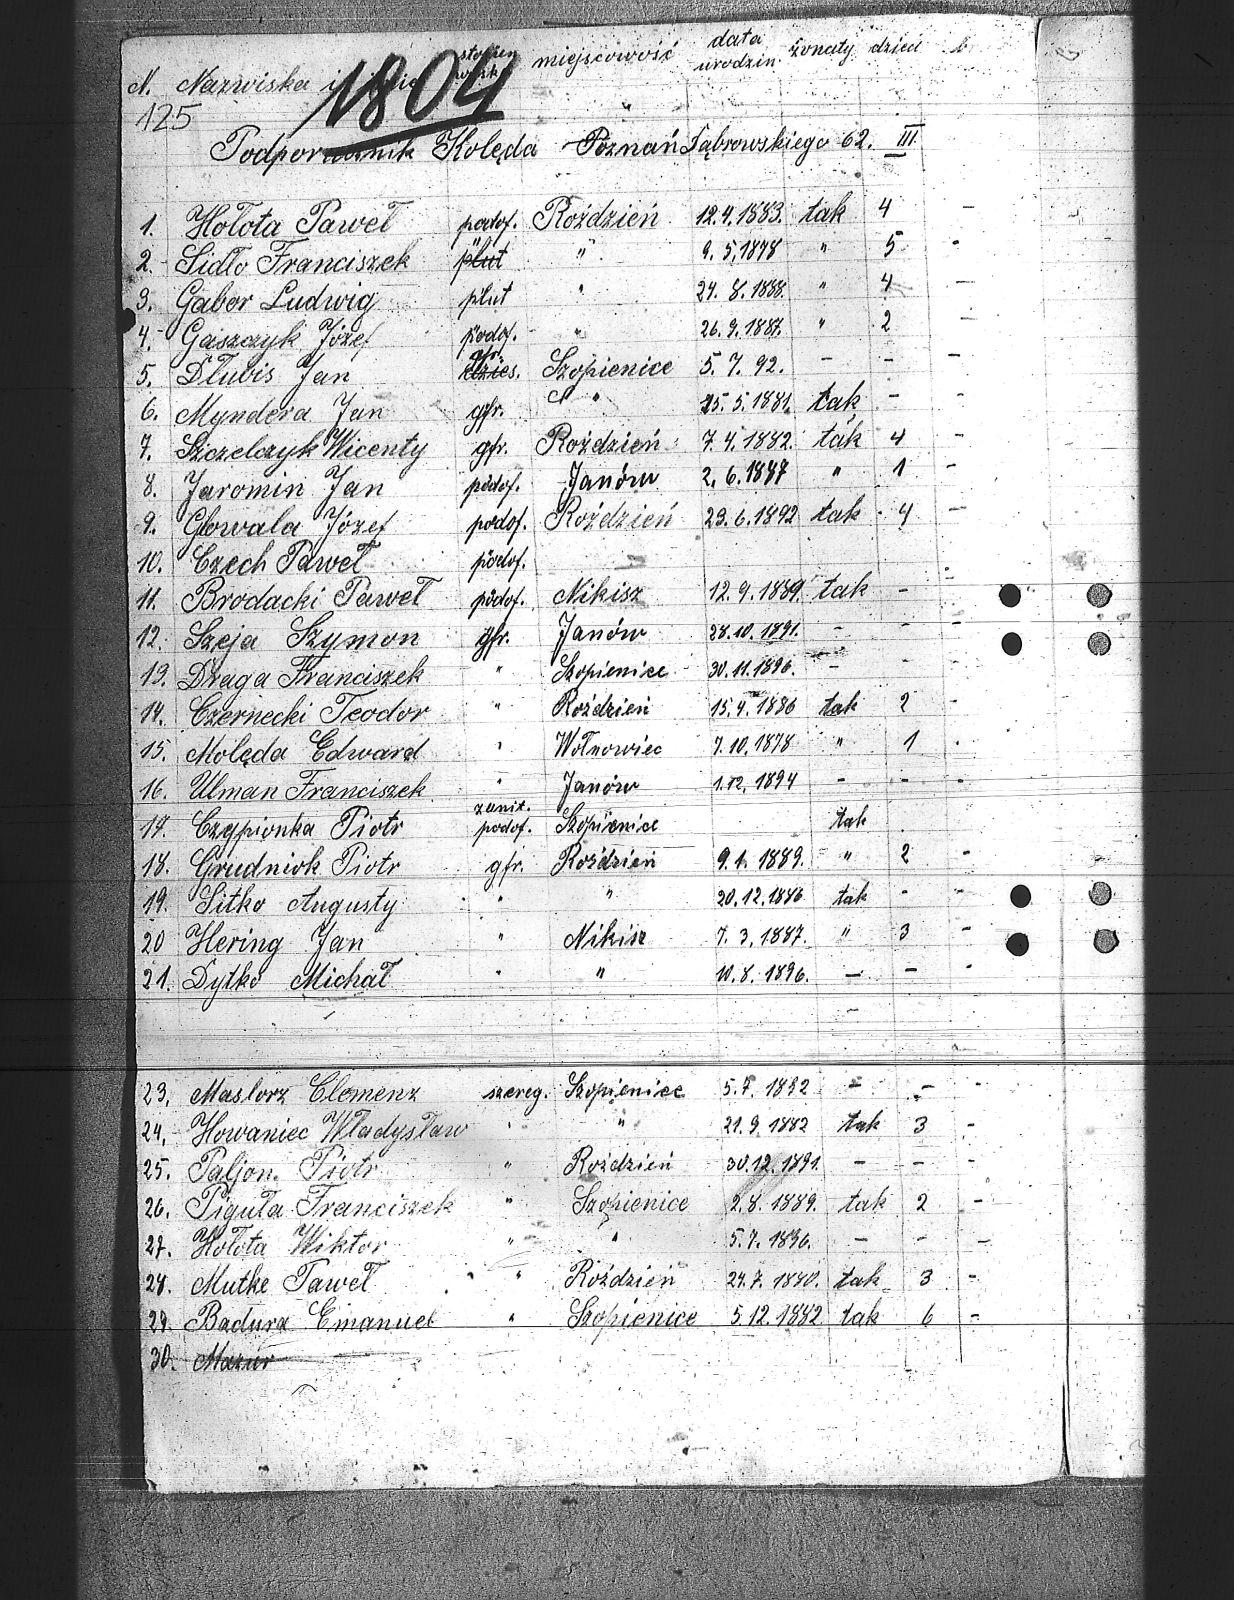 N. Nazwiska i stopień miejscowość data urodzin żonaty dzieci
1804
125
Podporucznik Kolęda Poznań Dąbrowskiego 62. III
1. Hołota Paweł podof. Roździeń 12.4.1883. tak 4 -
2. Sidło Franciszek plut " 9.5.1878 " 5 -
3. Gabor Ludwig plut " 24.8.1888. " 4 -
4. Gaszczyk Józef podof. " 26.9.1887. " 2 -
5. Dłubis Jan gfr. Szopienice 5.7.92. - - -
6. Myndera Jan gfr. " 25.5.1881. tak - -
7. Szczelczyk Wicenty gfr. Roździeń 7.4.1882. tak 4 -
8. Jaromin Jan podof. Janów 2.6.1887 " 1 -
9. Głowala Józef podof. Roździeń 23.6.1892 tak 4 -
10. Czech Paweł podof.
11. Brodacki Paweł podof. Nikisz 12.9.1889. tak - -
12. Szeja Szymon gfr. Janów 28.10.1891. - - -
13. Draga Franciszek " Szopienice 30.11.1896. - - -
14. Czernecki Teodor " Roździeń 15.4.1886 tak 2 -
15. Molęda Edward " Wełnowiec 7.10.1878 " 1 -
16. Ulman Franciszek " Janów 1.12.1894 - - -
17. Czypionka Piotr sanit. podof. Szopienice tak
18. Grudniok Piotr gfr. Roździeń 9.1.1889. " 2 -
19. Sitko Augusty " " 20.12.1886 tak - -
20 Hering Jan " Nikisz 7.3.1887. " 3 -
21. Dytko Michał " " 10.8.1896. - - -
23. Maslorz Clemenz szereg. Szopienice 5.7.1892 - - -
24. Howaniec Władysław " " 21.9.1882 tak 3 -
25. Paljon Piotr " Roździeń 30.12.1891. - - -
26. Piguła Franciszek " Szopienice 2.8.1889. tak 2 -
27. Hołota Wiktor " " 5.7.1896. - - -
28. Mutke Paweł " Roździeń 24.7.1880. tak 3 -
29. Badura Emanuel " Szopienice 5.12.1882 tak 6 -
30. Mazur